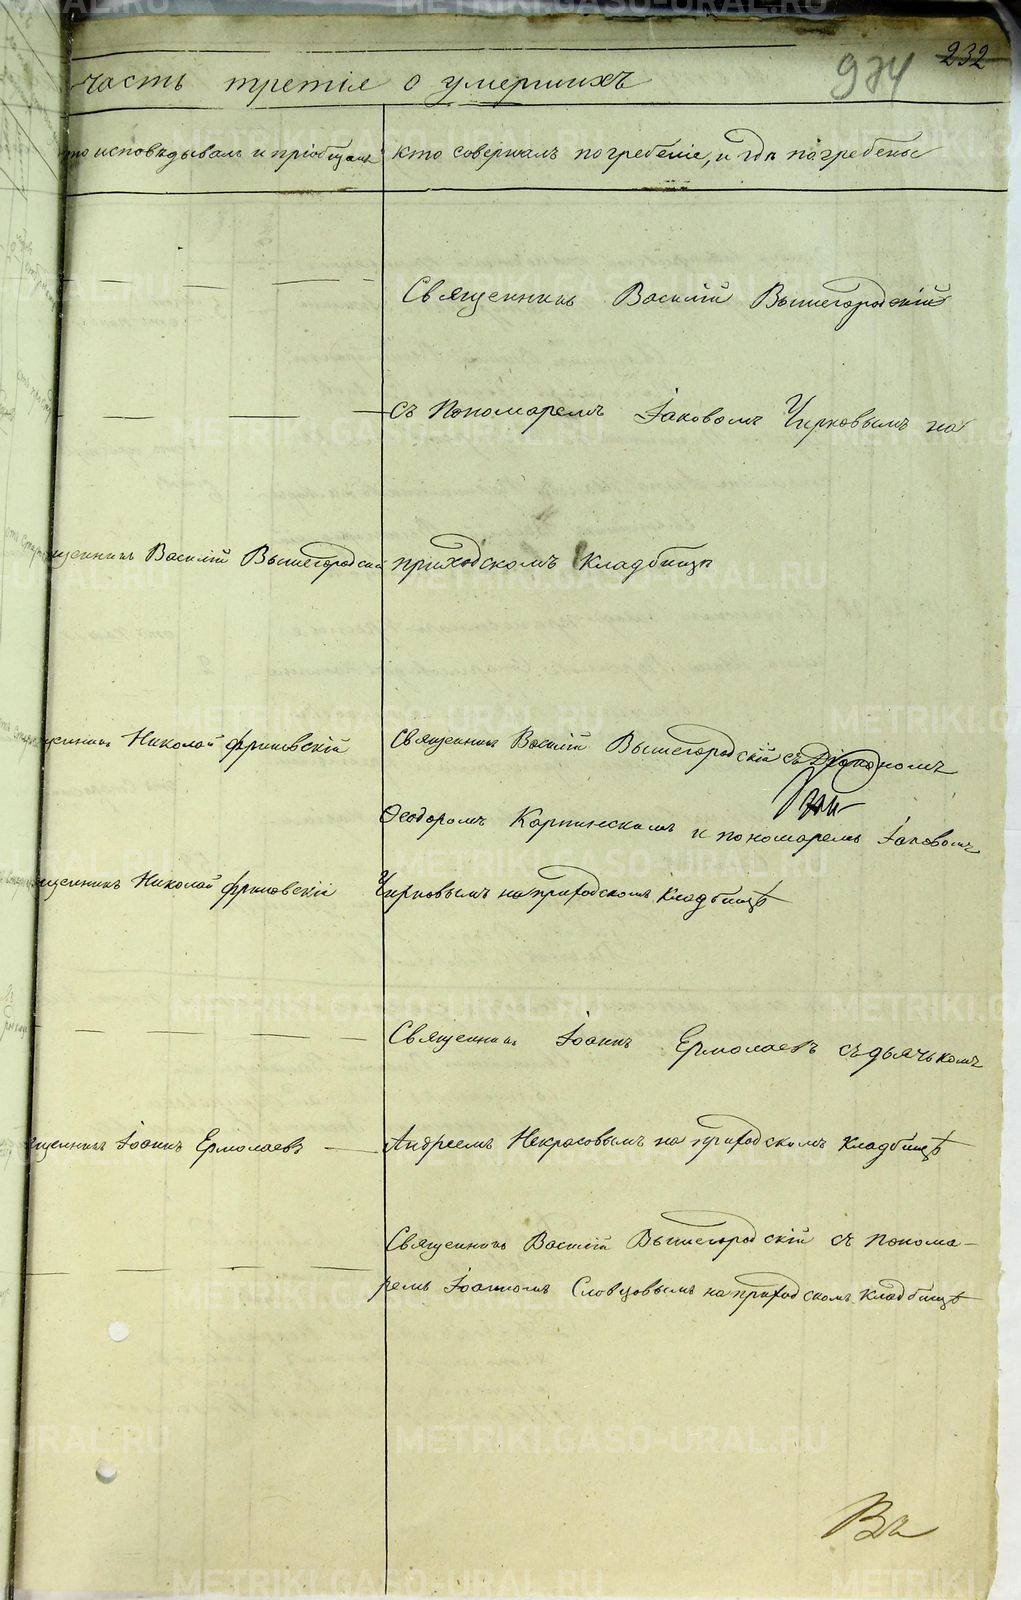 232
974
часть третія о умершихъ
то исповѣдывалъ и пріобщалъ
кто совершалъ погребеніе, и гдѣ погребены
Священникъ Василій Вышегородскій
съ Пономаремъ Іаковомъ Чирковымъ на
щенникъ Василій Вышегородскій
приходскомъ кладбищѣ
щенникъ Николай
Священникъ Василій Вышегородскій съ Діакономъ
Ѳеодоромъ Карпинскимъ и пономаремъ Іаковомъ
щенникъ Николай
Чирковымъ на приходскомъ кладбищѣ
Священникъ Іоаннъ Ермолаевъ съ дьячькомъ
щенникъ Іоаннъ Ермолаевъ
Андреемъ Некрасовымъ на приходскомъ кладбищѣ
Священникъ Василій Вышегородскій съ понома-
ремъ Іоанномъ Словцовымъ на приходскомъ кладбищѣ
METRIKI.GASO-URAL.RU